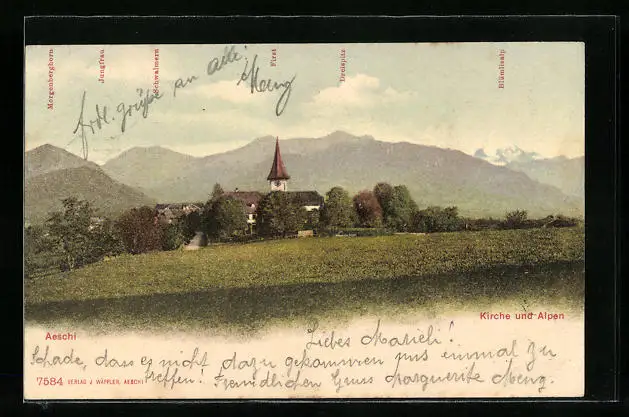 Morgenberghorn
Jungfrau
Schwalmern
First
Dreispitz
Blümlisalp
frdl. grüße an alle Meng
Kirche und Alpen
Aeschi
Liebes Marieli!
Schade, dass es nicht dazu gekommen uns einmal zu
treffen! Freundlichen Gruss Marguerite Meng.
7584 VERLAG J. WÄFFLER, AESCHI